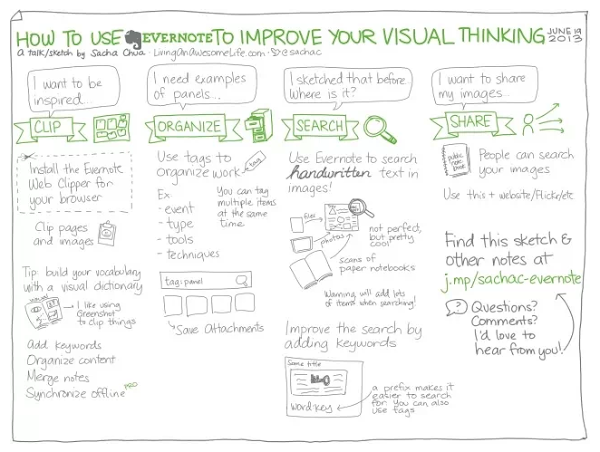 HOW TO USE EVERNOTE TO IMPROVE YOUR VISUAL THINKING JUNE 19 2013
a talk/sketch by Sacha Chua · LivingAnAwesomeLife.com · @sachac
I want to be
inspired...
CLIP
Install the Evernote
Web Clipper for
your browser
Clip pages
and images
Tip: build your vocabulary
with a visual dictionary
I like using
Greenshot
to clip things
Add keywords
Organize content
Merge notes
Synchronize offline PRO
I need examples
of panels...
ORGANIZE
Use tags to
organize work
tag
Ex
- event
- type
- tools
- techniques
You can tag
multiple items
at the same
time.
tag:panel
Save Attachments
I sketched that before
Where is it?
SEARCH
Use Evernote to search
handwritten text in
images!
files
photos
not perfect,
but pretty
cool
scans of
paper notebooks
Warning: will add lots
of items when searching!
Improve the search by
adding keywords
Some title
wordkey
a prefix makes it
easier to search
for. You can also
use tags
I want to share
my images...
SHARE
public
note
book
People can search
your images
Use this + website/Flickr/etc
Find this sketch &
other notes at
j.mp/sachac-evernote
?
Questions?
Comments?
I'd love to
hear from you!